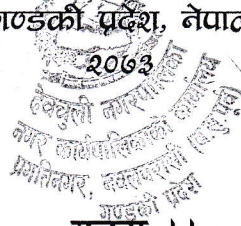 गण्डकी प्रदेश, नेपाल
२०७३
देवचुली नगरपालिका
नगर कार्यपालिकाको कार्यालय
प्रगतिनगर, नवलपरासी (ब.सु.पू.)
गण्डकी प्रदेश